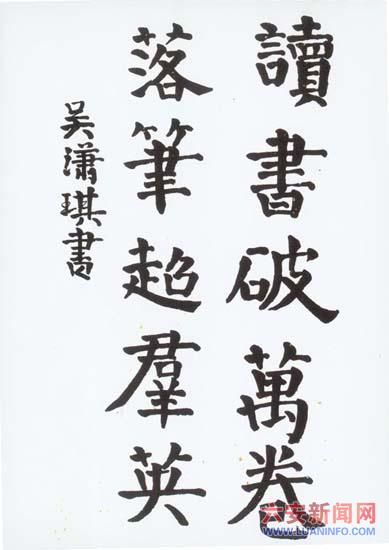 讀書破萬卷
落筆超羣英
吴瀟琪書
六安新闻网
WWW.LUANINFO.COM